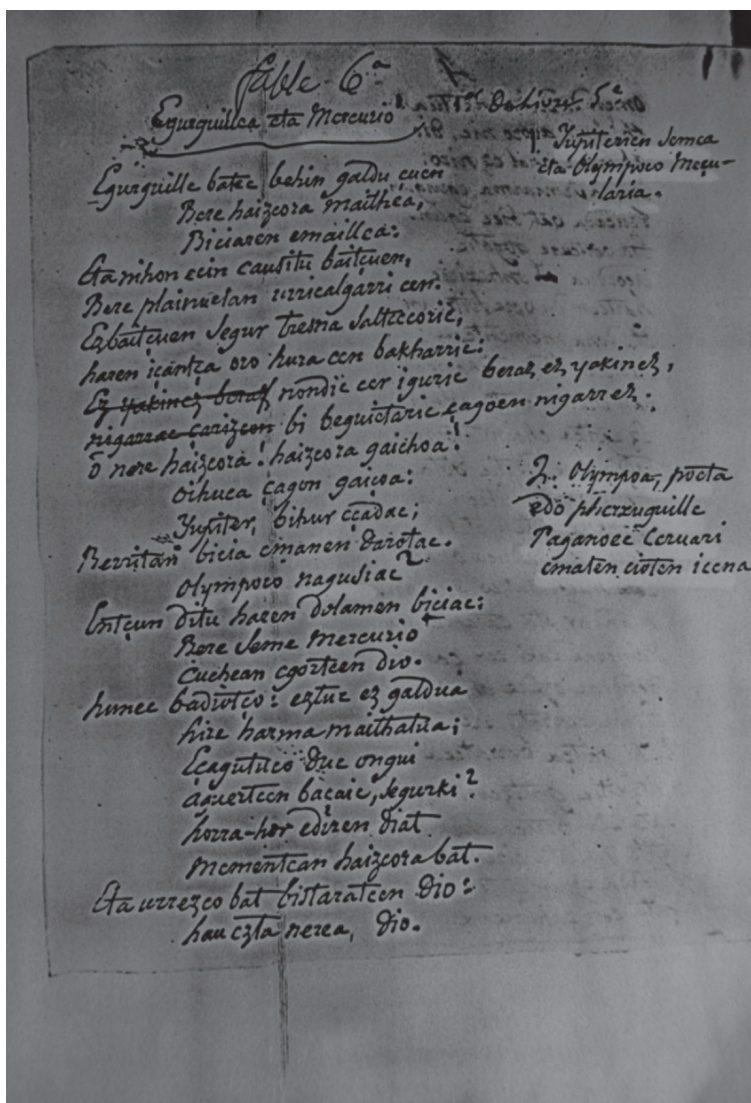 fable 6.ª
Egurguillea eta Mercurio¹
Egurguille batec behin galdu cuen
Bere haizcora maithea,
Biciaren emaillea:
Eta nihon ecin causitu baitçuen,
Bere plainuetan urricalgarri cen.
Ezbaitçuen segur tresna saltcecoric,
haren icantça oro hura cen bakharric:
Ez yakinez beraz nondic cer iguric beraz ez yakinez,
nigarrac carizcon bi beguietaric çagoen nigarrez.
ô nere haizcora! haizcora gaichoa!
oihuca çagon gaiçoa:
Yupiter, bihur ecadac;
Berritan bicia emanen darotac.
Olympoco nagusiac²
Entçun ditu haren dolamen biciac:
Bere seme Mercurio
Cuchean egortcen dio.
hunec badiotço: eztuc ez galdua
hire harma maithatua;
Eçagutuco duc ongui
aguertcen baçaic, segurki?
horra-hor ediren diat
momentean haizcora bat.
Eta urrezco bat bistaratcen dio:
hau ezta nerea, dio.
Lib. 5.e
1. Yupiterien semea
eta Olympoco Meçu-
laria.
2. Olympoa, poeta
edo pherxuguille
Paganoec Ceruari
ematen cioten icena